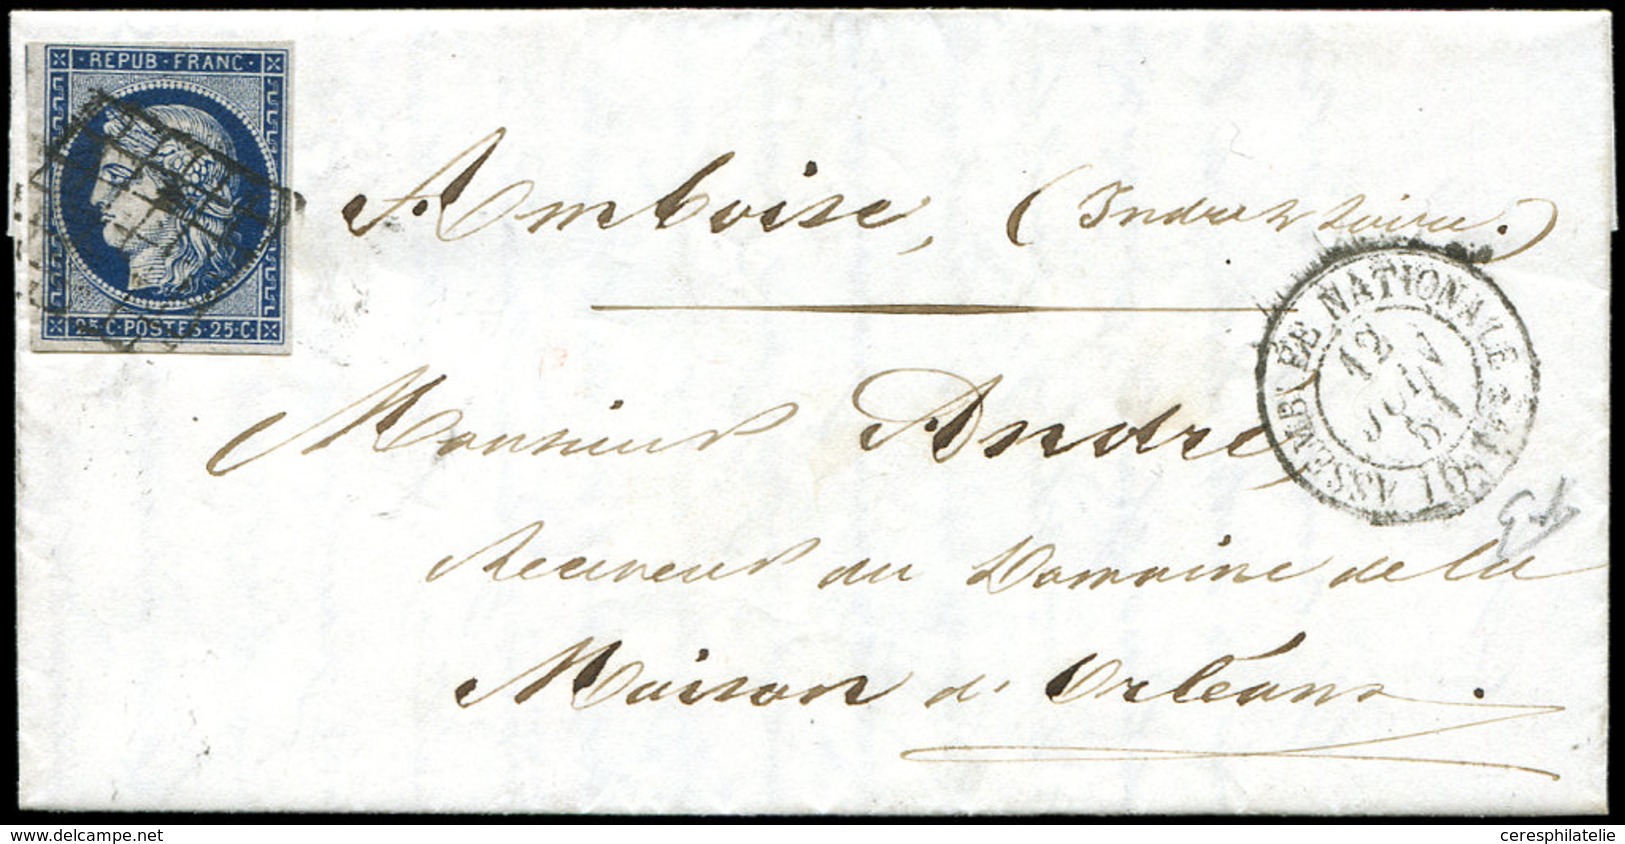 REPUB·FRANC
25·C·POSTES·25·C
Amboise, (Indre & Loire.)
ASSEMBLÉE NATIONALE
12
JUIN
51
Monsieur André,
Receveur du Domaine de la
Maison d'Orléans.
www.delcampe.net
ceresphilatelie